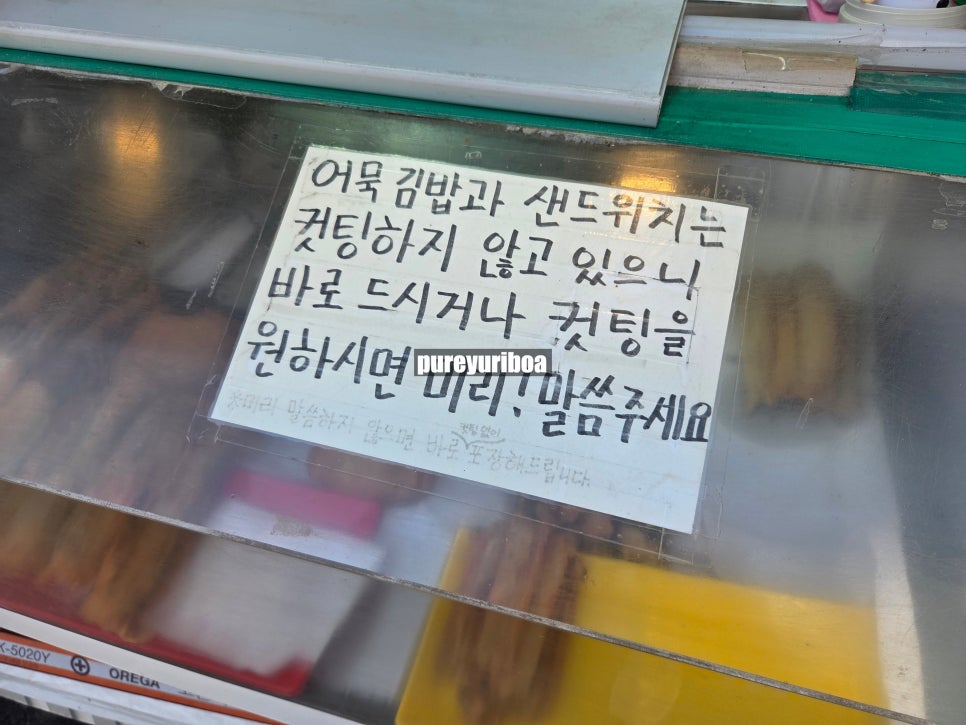 어묵김밥과 샌드위치는
컷팅하지 않고 있으니
바로 드시거나 컷팅을
원하시면 미리! 말씀주세요
pureyuriboa
※미리 말씀하지 않으면 바로 컷팅없이 포장해드립니다.
K-5020Y
OREGA